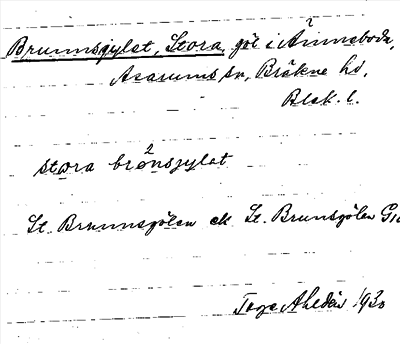 Brunnsgylet, Stora, göl i Ånneboda,
Asarums sn, Bräkne hd,
Blek. l.
stora brönsjylat
St. Brunnsgölen ek St. Brunsgölen G
Tage Ahldén 1930